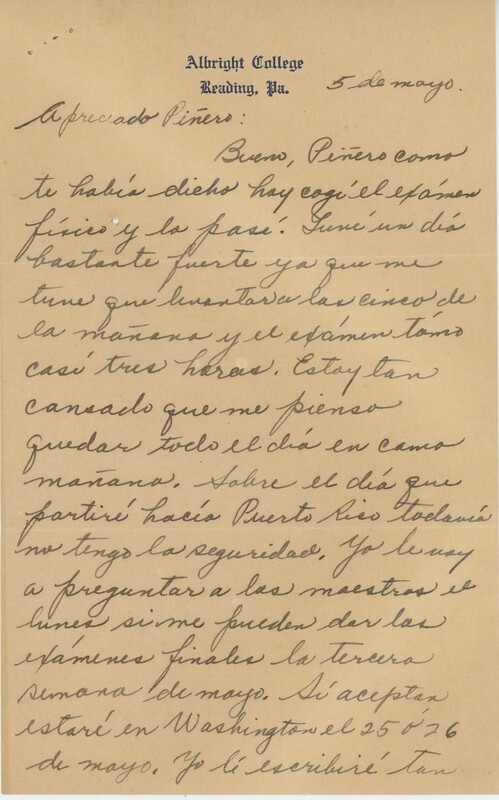 Albright College
Reading, Pa.
5 de mayo.
Apreciado Piñero:
Bueno, Piñero como
te había dicho hoy cogí el exámen
físico y lo pasé. Tuve un día
bastante fuerte ya que me
tuve que levantar a las cinco de
la mañana y el exámen tomo
casí tres horas. Estoy tan
cansado que me pienso
quedar todo el día en cama
mañana. Sobre el día que
partiré hacía Puerto Rico todavía
no tengo la seguridad. Yo le voy
a preguntar a los maestros el
lunes si me pueden dar los
exámenes finales la tercera
semana de mayo. Sí aceptan
estaré en Washington el 25 ó 26
de mayo. Yo lé escribiré tan